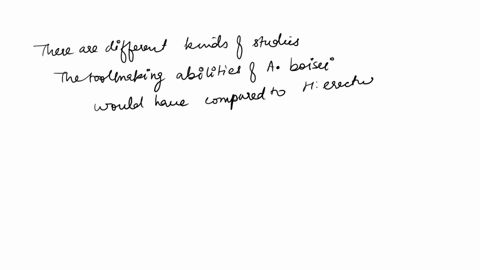 There are different kinds of studies
The toolmaking abilities of A. boisei
would have compared to H. erectu